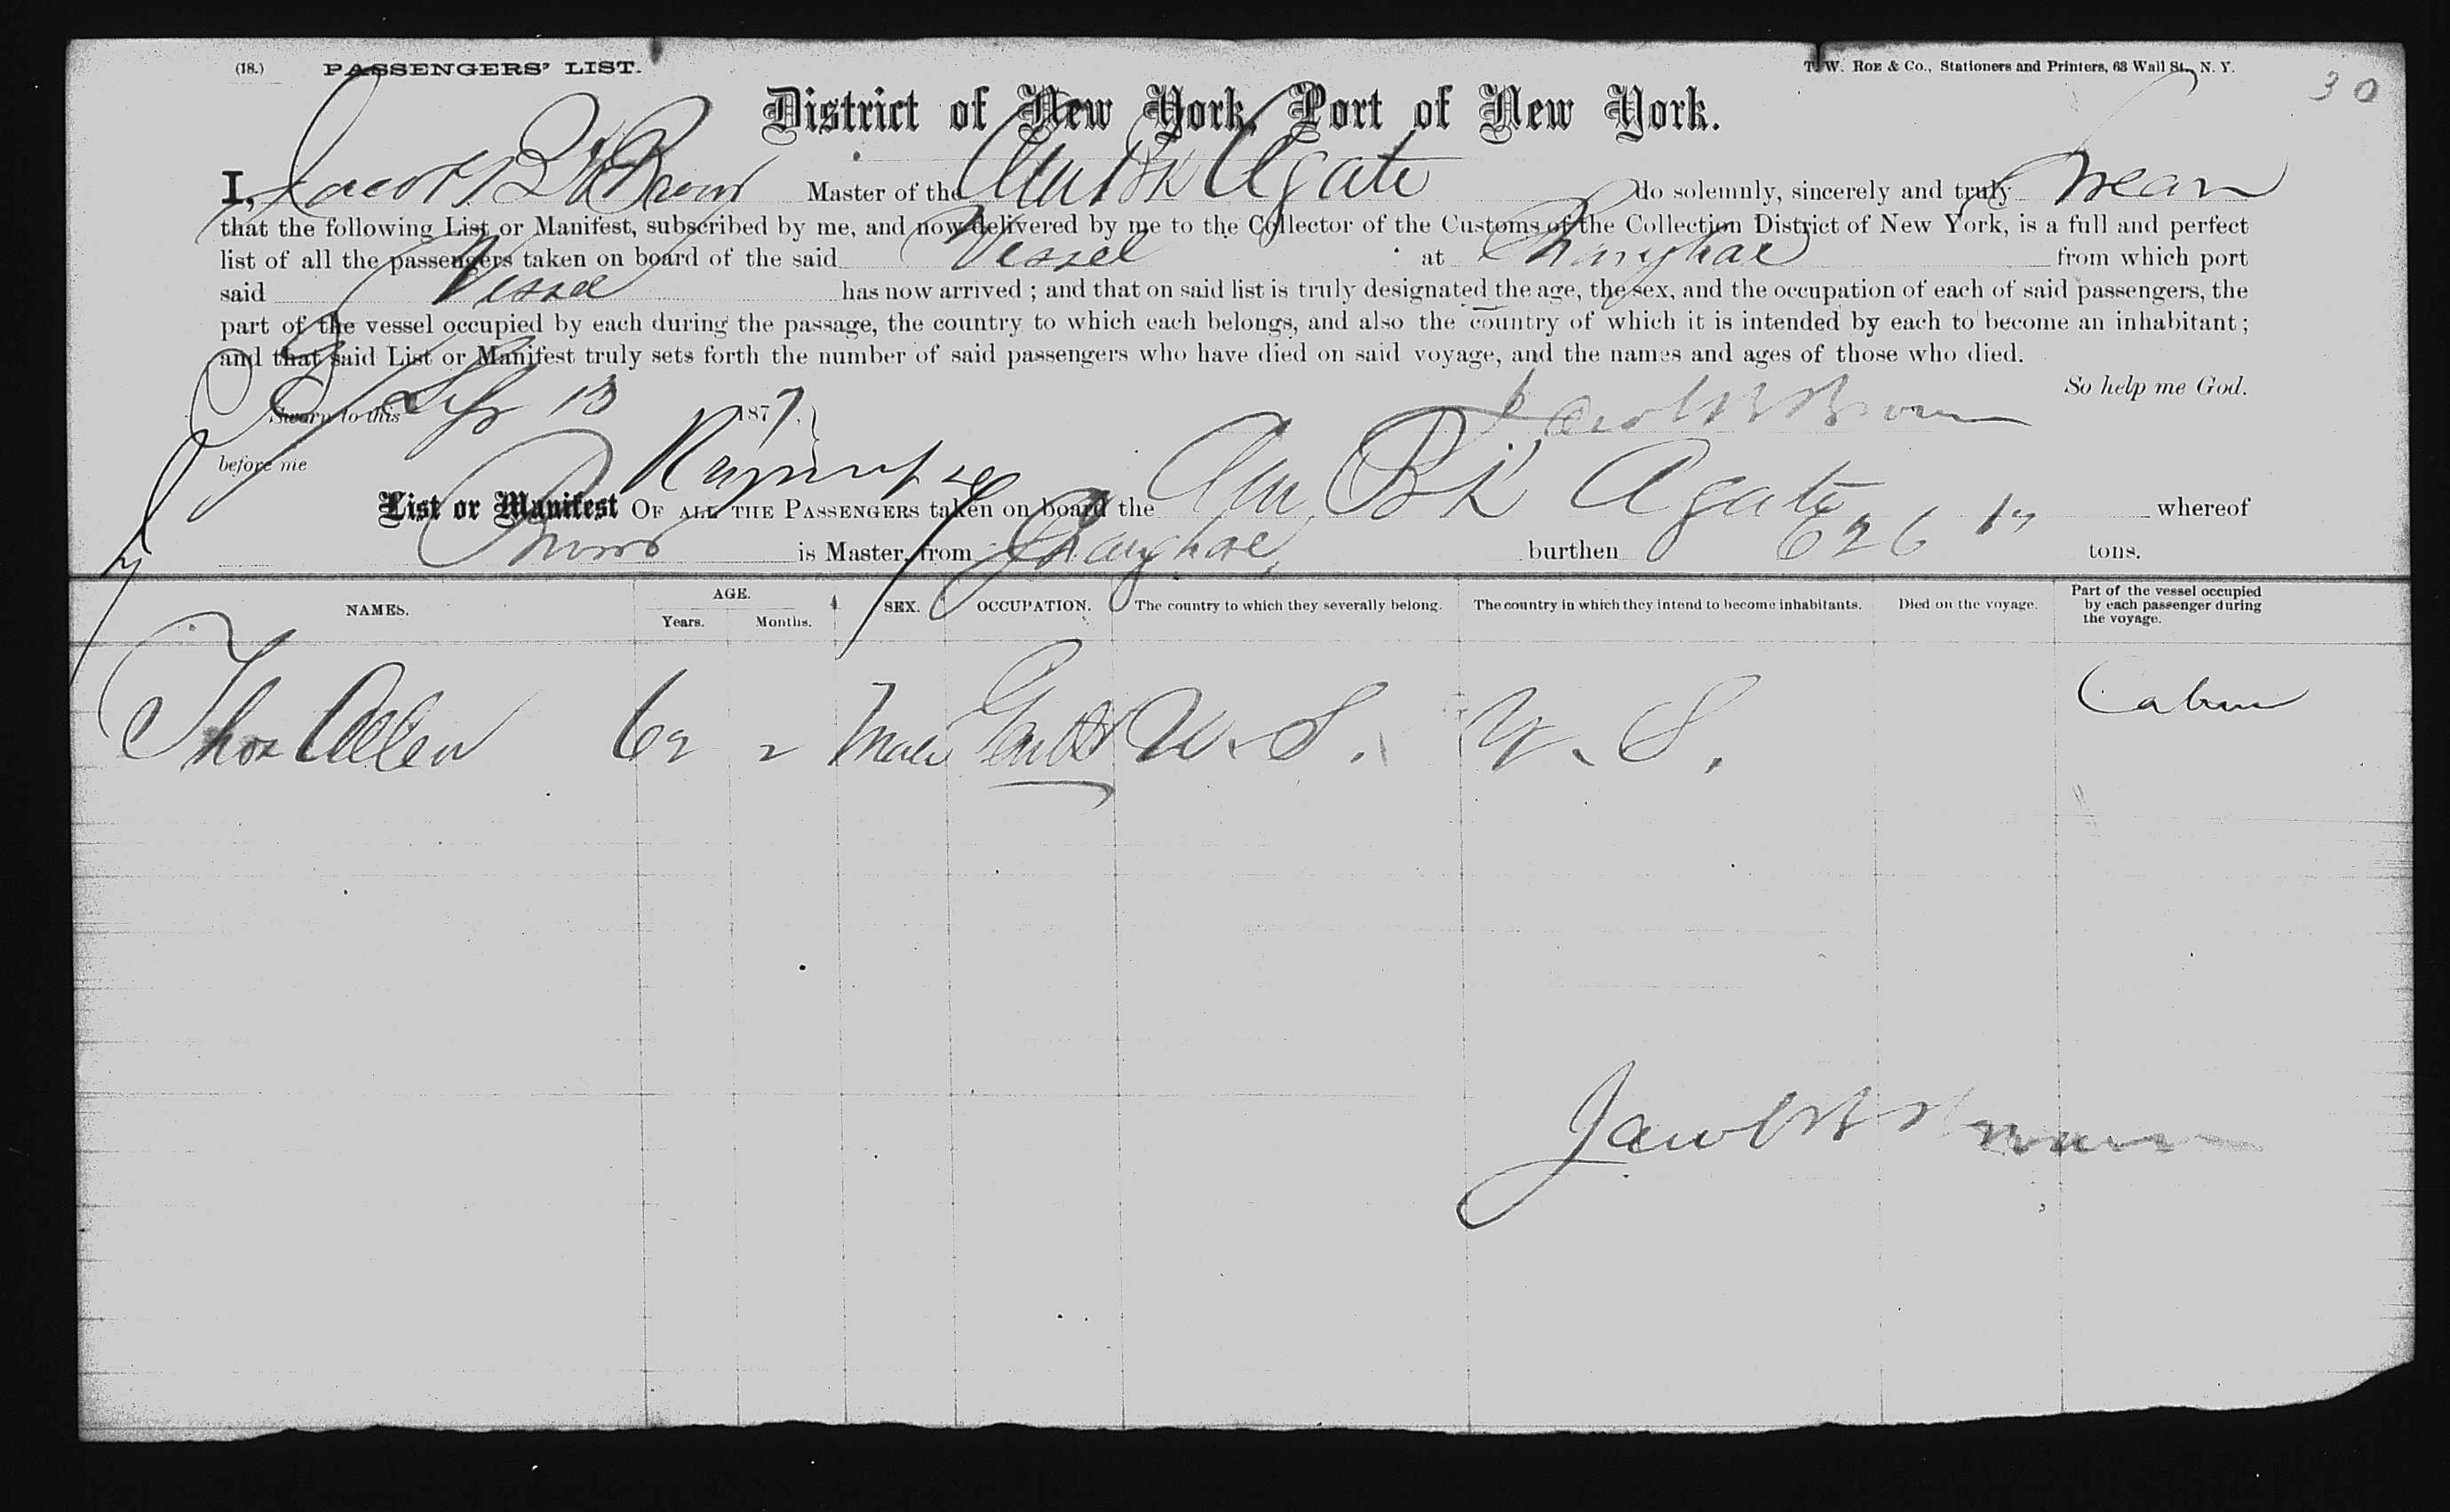 (18.) PASSENGERS' LIST. T. W. Roe & Co., Stationers and Printers, 63 Wall St., N. Y. 30
District of New York, Port of New York.
I, Jacob B Brown Master of the Am Bk Agate do solemnly, sincerely and truly swear
that the following List or Manifest, subscribed by me, and now delivered by me to the Collector of the Customs of the Collection District of New York, is a full and perfect
list of all the passengers taken on board of the said Vessel at Shanghae from which port
said Vessel has now arrived ; and that on said list is truly designated the age, the sex, and the occupation of each of said passengers, the
part of the vessel occupied by each during the passage, the country to which each belongs, and also the country of which it is intended by each to become an inhabitant ;
and that said List or Manifest truly sets forth the number of said passengers who have died on said voyage, and the names and ages of those who died.
So help me God.
Sworn to this 13 1877. Jacob B Brown
before me
List or Manifest OF ALL THE PASSENGERS taken on board the Am Bk Agate whereof
Brown is Master, from Shanghae, burthen 626 tons.
NAMES. AGE. Years. Months. SEX. OCCUPATION. The country to which they severally belong. The country in which they intend to become inhabitants. Died on the voyage. Part of the vessel occupied by each passenger during the voyage.
Thos Allen 62 2 Male Gent U. S. U. S. Cabin
Jacob B Brown